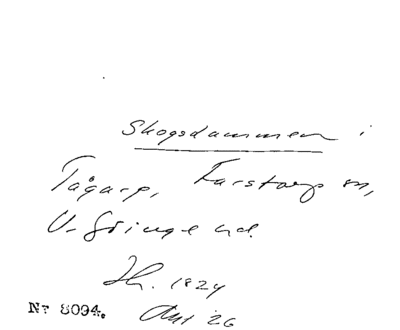 Skogsdammen i
Tågarp, Farstorp sn,
V. Göinge hd.
Th. 1824
Nr 8094.